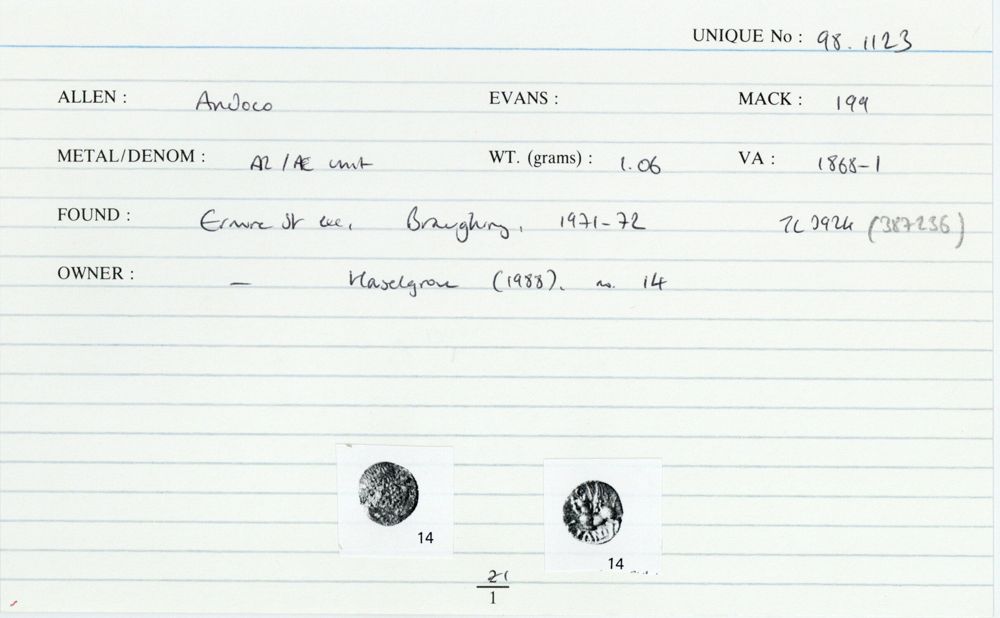 UNIQUE No : 98.1123
ALLEN : Andoco EVANS : MACK : 199
METAL/DENOM : AR/AE unit WT. (grams) : 1.06 VA : 1868-1
FOUND : Ermine St exc. Braughing, 1971-72 TL 3924 (387236)
OWNER : — Haselgrove (1988), no. 14
14
14
21
1